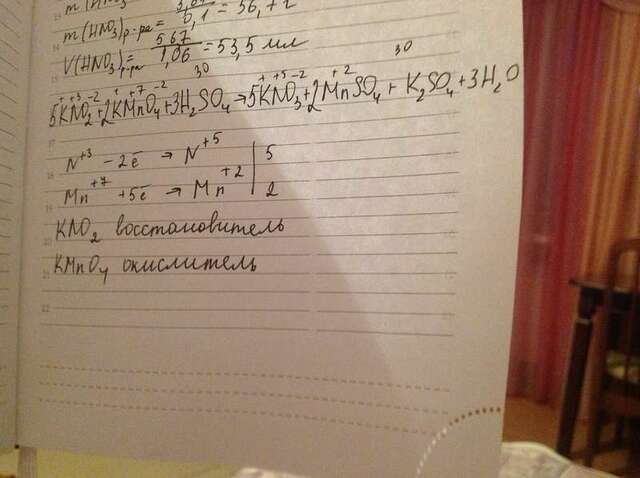 m(HNO₃)р-ра = 0,1 = 56,7 г
V(HNO₃)р-ра = 5,67 / 1,06 = 53,5 мл
30 30
+ +3 -2 + +7 -2 + +5 -2 +2
5KNO₂+2KMnO₄+3H₂SO₄→5KNO₃+2MnSO₄+K₂SO₄+3H₂O
N⁺³ - 2ē → N⁺⁵ | 5
Mn⁺⁷ +5ē → Mn⁺² | 2
KNO₂ восстановитель
KMnO₄ окислитель